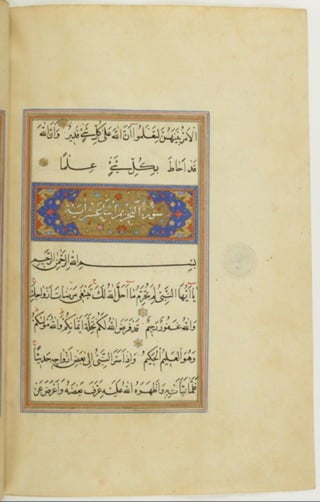 الامر بينهن لتعلموا ان الله على كل شئ قدير وان الله
قد احاط بكل شئ علما
سورة التحريم اثنتا عشر اية
بسم الله الرحمن الرحيم
يا ايها النبي لم تحرم ما احل الله لك تبتغي مرضات ازواجك
والله غفور رحيم قد فرض الله لكم تحلة ايمانكم والله موليكم
وهو العليم الحكيم واذ اسر النبي الى بعض ازواجه حديثا
فلما نبأت به واظهره الله عليه عرف بعضه واعرض عن